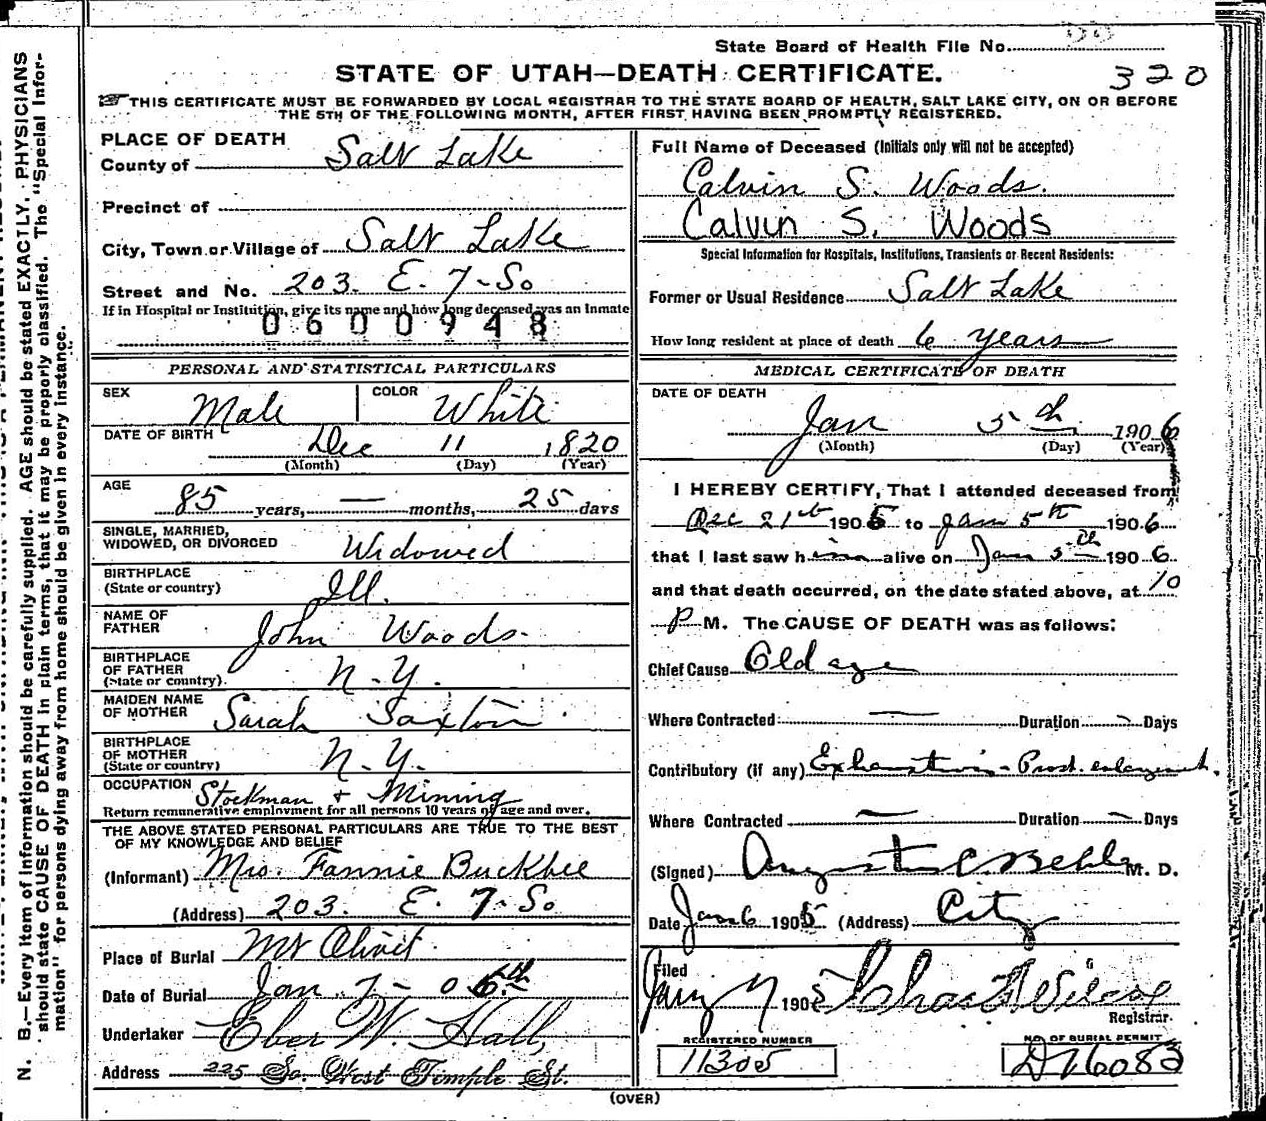 State Board of Health File No.
320
STATE OF UTAH—DEATH CERTIFICATE.
THIS CERTIFICATE MUST BE FORWARDED BY LOCAL REGISTRAR TO THE STATE BOARD OF HEALTH, SALT LAKE CITY, ON OR BEFORE
THE 5TH OF THE FOLLOWING MONTH, AFTER FIRST HAVING BEEN PROMPTLY REGISTERED.
PLACE OF DEATH
County of Salt Lake
Precinct of
City, Town or Village of Salt Lake
Street and No. 203. E. 7-So
If in Hospital or Institution, give its name and how long deceased was an Inmate
0600948
PERSONAL AND STATISTICAL PARTICULARS
SEX Male COLOR White
DATE OF BIRTH Dec 11, 1820
(Month) (Day) (Year)
AGE
85 years, — months, 25 days
SINGLE, MARRIED,
WIDOWED, OR DIVORCED Widowed
BIRTHPLACE
(State or country) Ill.
NAME OF
FATHER John Woods.
BIRTHPLACE
OF FATHER
(State or country). N.Y.
MAIDEN NAME
OF MOTHER Sarah Saxton
BIRTHPLACE
OF MOTHER
(State or country) N.Y.
OCCUPATION Stockman & Mining
Return remunerative employment for all persons 10 years of age and over.
THE ABOVE STATED PERSONAL PARTICULARS ARE TRUE TO THE BEST
OF MY KNOWLEDGE AND BELIEF
(Informant) Mrs. Fannie Buckbee
(Address) 203. E. 7-So
Place of Burial Mt Olivet
Date of Burial Jan 7- 06
Undertaker Eber W. Hall,
Address 225 So. West Temple St.
Full Name of Deceased (Initials only will not be accepted)
Calvin S. Woods.
Calvin S. Woods
Special Information for Hospitals, Institutions, Transients or Recent Residents:
Former or Usual Residence Salt Lake
How long resident at place of death 6 years
MEDICAL CERTIFICATE OF DEATH
DATE OF DEATH
Jan 5th 1906
(Month) (Day) (Year)
I HEREBY CERTIFY, That I attended deceased from
Dec 21st 1905 to Jan 5th 1906
that I last saw him alive on Jan 5th 1906
and that death occurred, on the date stated above, at 10
P M. The CAUSE OF DEATH was as follows:
Chief Cause Old age
Where Contracted — Duration — Days
Contributory (if any) Exhaustion - Prost. enlargement.
Where Contracted — Duration — Days
(Signed) August C. Behle M. D.
Date Jan 6 1905 (Address) City
Filed
Jany 7 1905 Chas F. Wilcox
Registrar
REGISTERED NUMBER
11305
NO. OF BURIAL PERMIT
D76083
(OVER)
N. B.—Every item of information should be carefully supplied. AGE should be stated EXACTLY. PHYSICIANS
should state CAUSE OF DEATH in plain terms, that it may be properly classified. The "Special Infor-
mation" for persons dying away from home should be given in every instance.